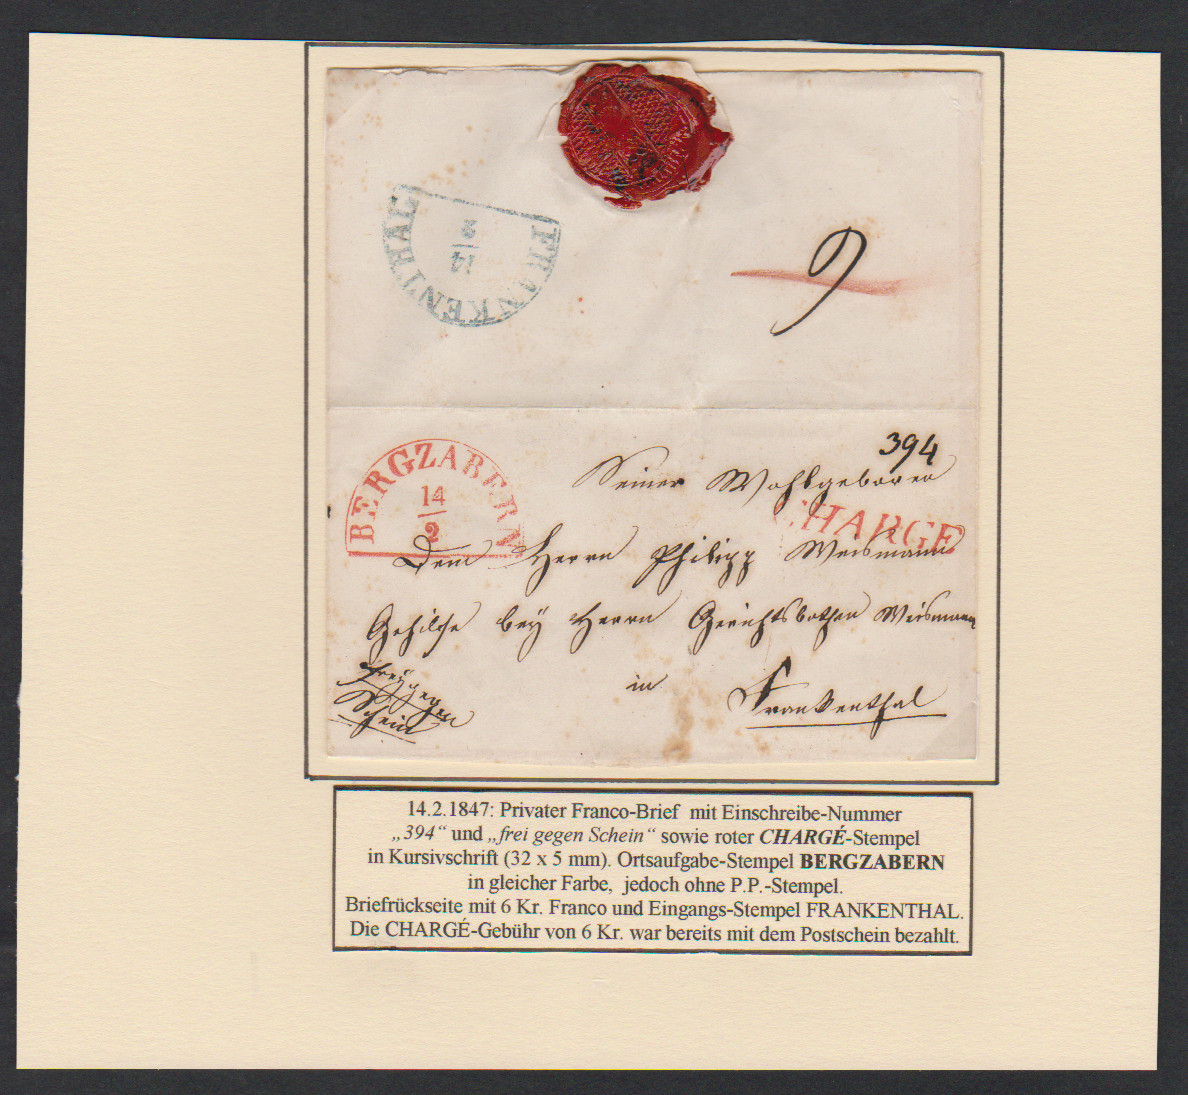 FRANKENTHAL
14
2
9
394
BERGZABERN
14
2
Seiner Wohlgeboren
CHARGÉ
Dem Herrn Philipp Weismann
Gehilfe bey Herrn Gerichtsbothen Weismann
in Frankenthal
frey gegen
Schein
14.2.1847: Privater Franco-Brief mit Einschreibe-Nummer
„394“ und „frei gegen Schein“ sowie roter CHARGÉ-Stempel
in Kursivschrift (32 x 5 mm). Ortsaufgabe-Stempel BERGZABERN
in gleicher Farbe, jedoch ohne P.P.-Stempel.
Briefrückseite mit 6 Kr. Franco und Eingangs-Stempel FRANKENTHAL.
Die CHARGÉ-Gebühr von 6 Kr. war bereits mit dem Postschein bezahlt.